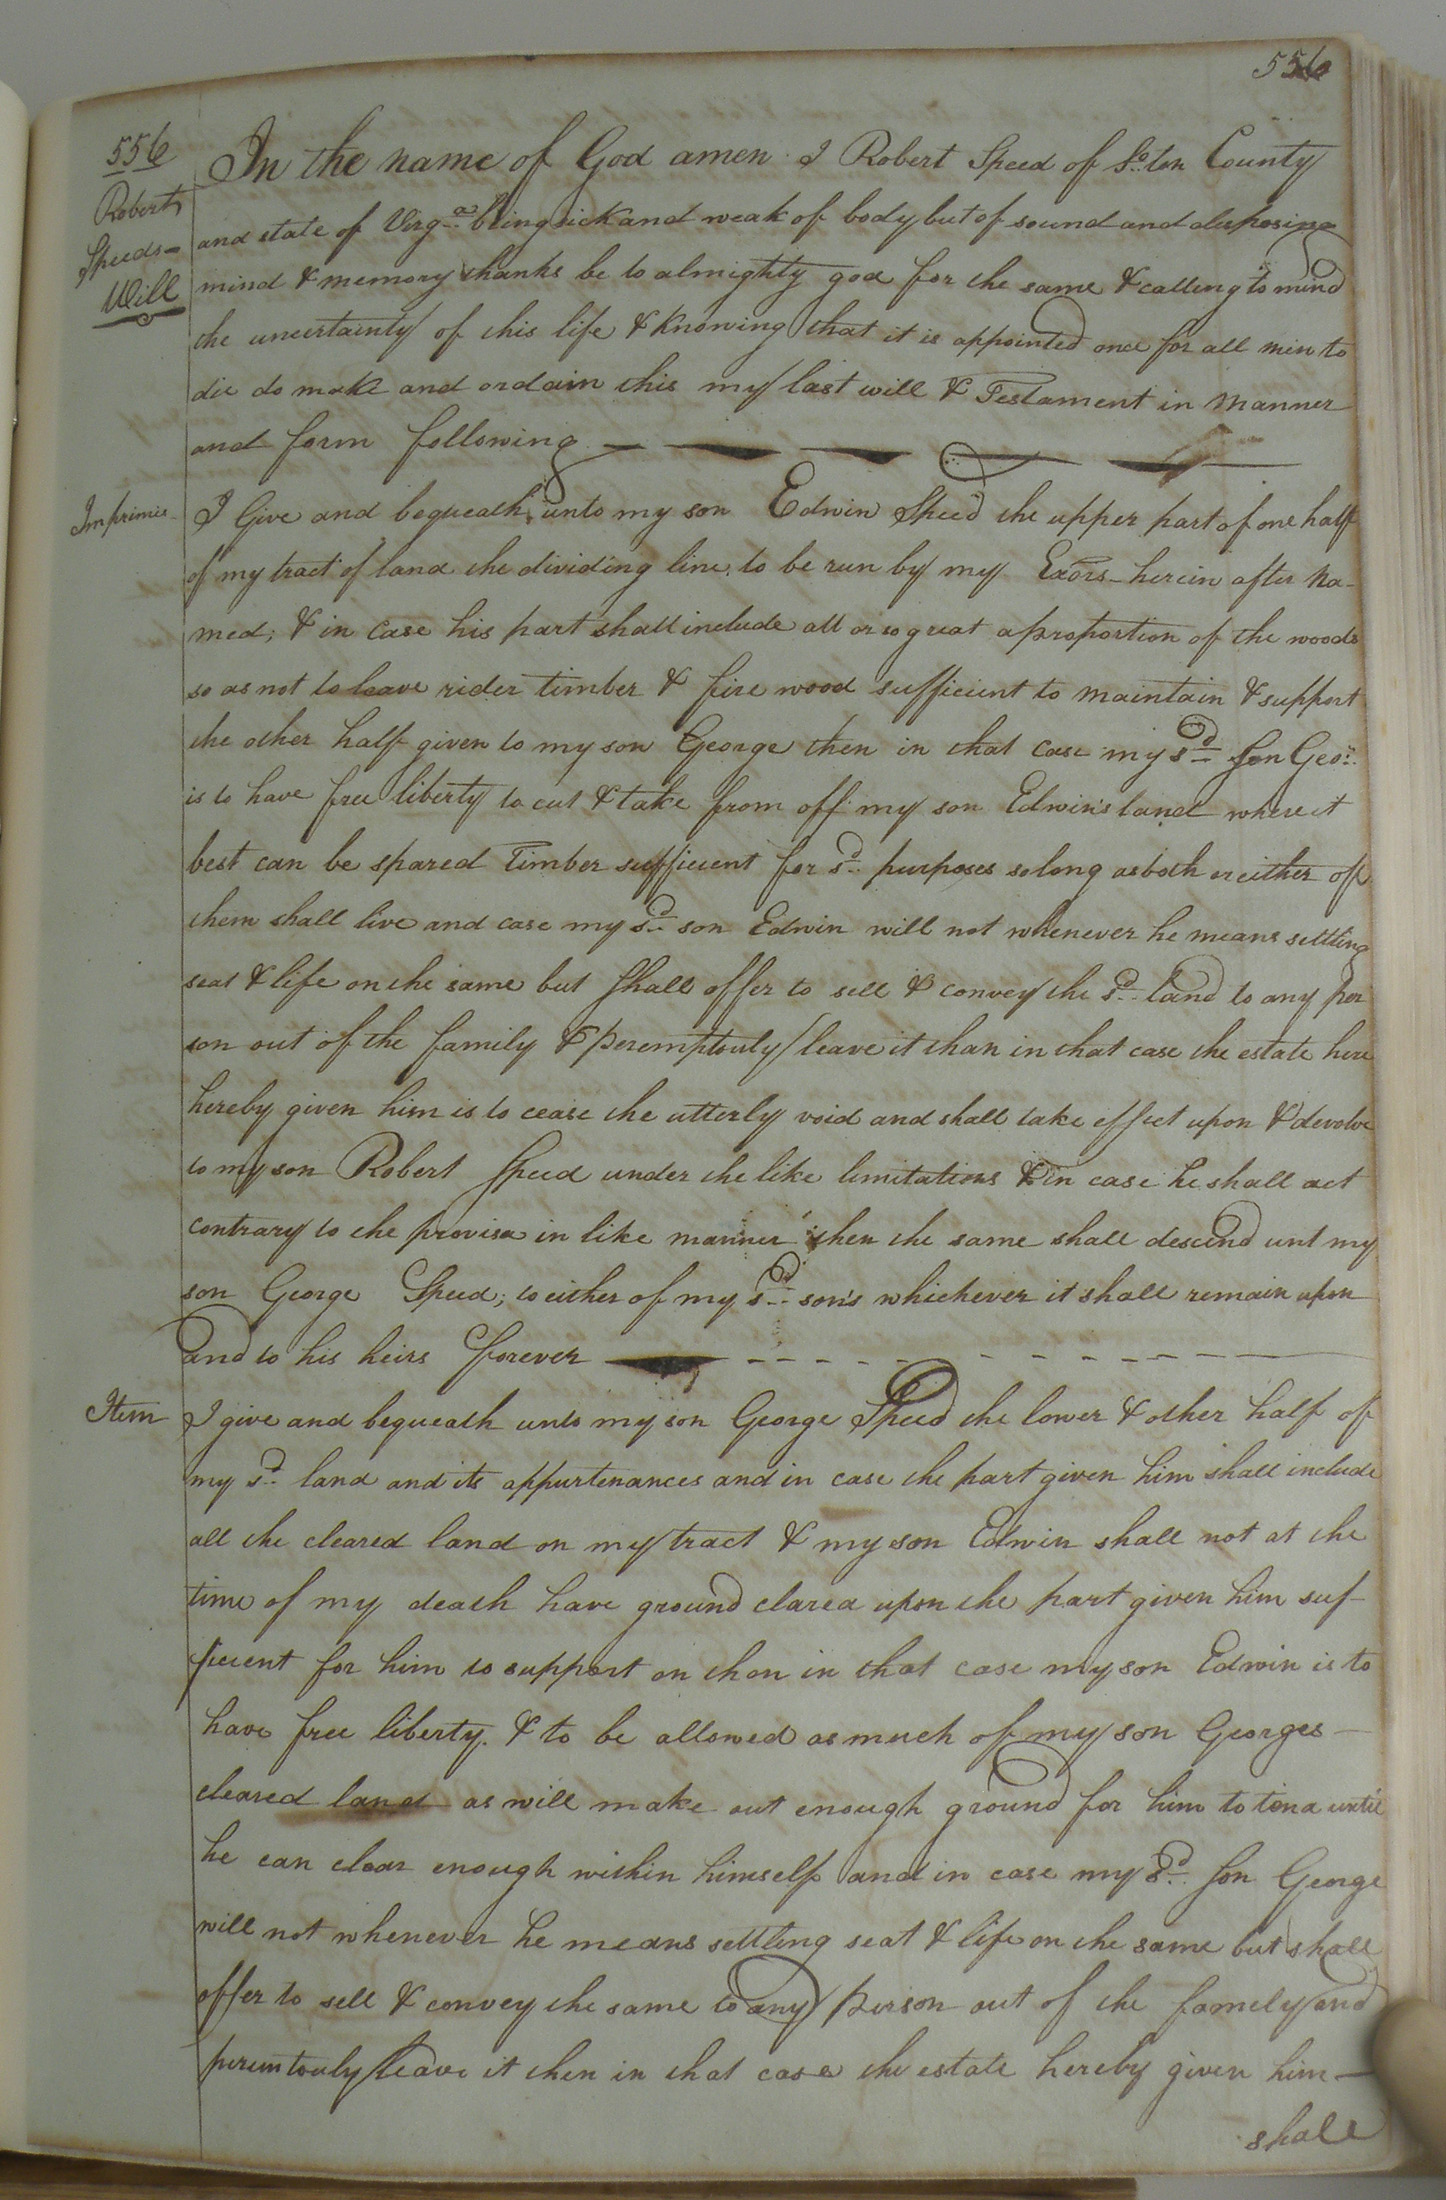 556
556
Roberts
Speeds
Will
In the name of God amen I Robert Speed of So.ton County
and state of Virga. being sick and weak of body but of sound and disposing
mind & memory thanks be to almighty god for the same & calling to mind
the uncertainty of this life & knowing that it is appointed once for all men to
die do make and ordain this my last will & Testament in manner
and form following
Imprimis
I Give and bequeath unto my son Edwin Speed the upper part of one half
of my tract of land the dividing line to be run by my Exors herein after na-
med; & in case his part shall include all or so great a proportion of the woods
so as not to leave rider timber & fire wood sufficient to maintain & support
the other half given to my son George then in that case my sd. Son Geo:
is to have free liberty to cut & take from off my son Edwin's land where it
best can be spared Timber sufficient for sd. purposes so long as both or either of
them shall live and case my sd. son Edwin will not whenever he means settling
seat & life on the same but shall offer to sell & convey the sd. land to any per
son out of the family & peremptouly leave it than in that case the estate here
hereby given him is to cease the utterly void and shall take effect upon & devolve
to my son Robert Speed under the like limitations & in case he shall act
contrary to the proviso in like manner then the same shall descend unt my
son George Speed; to either of my sd. son's whichever it shall remain upon
and to his heirs forever
Item
I give and bequeath unto my son George Speed the lower & other half of
my sd. land and its appurtenances and in case the part given him shall include
all the cleared land on my tract & my son Edwin shall not at the
time of my death have ground clared upon the part given him suf-
ficient for him to support on than in that case my son Edwin is to
have free liberty. & to be allowed as much of my son Georges
cleared land as will make out enough ground for him to tend until
he can clear enough within himself and in case my sd. Son George
will not whenever he means settling seat & life on the same but shall
offer to sell & convey the same to any person out of the family and
peremtouly leave it then in that case the estate hereby given him
shall